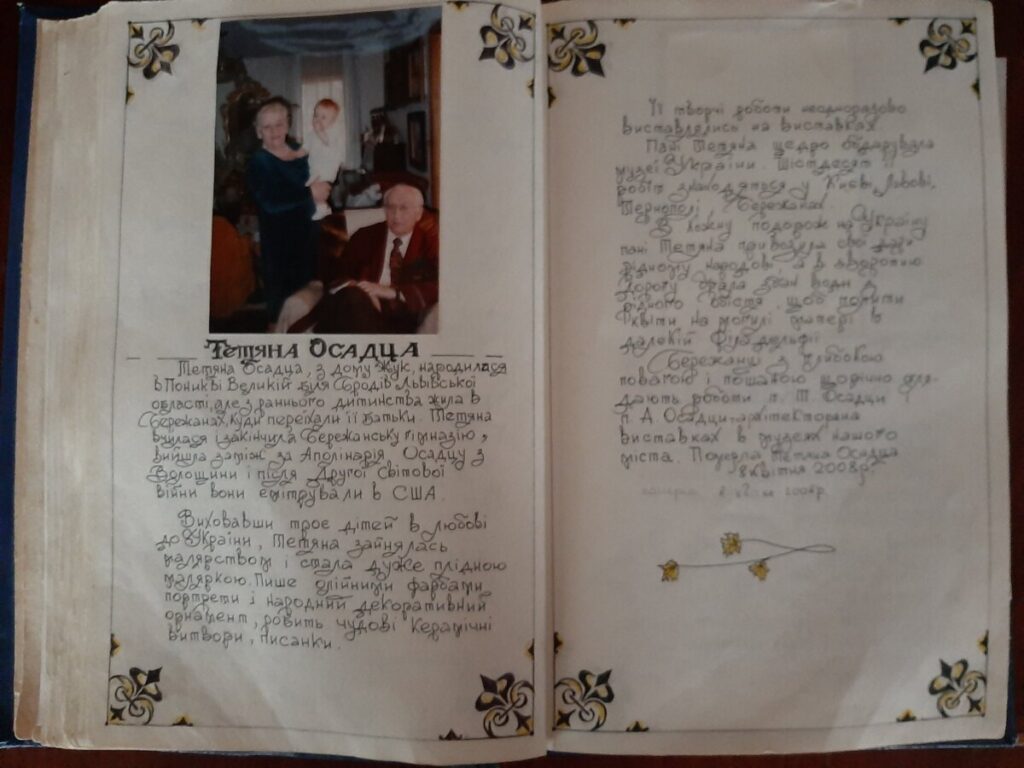 Тетяна Осадца
Тетяна Осадца, з дому Жук, народилася
в Поникві Великій біля Бродів Львівської
області, але з раннього дитинства жила в
Бережанах, куди переїхали її батьки. Тетяна
вчилася і закінчила Бережанську гімназію,
вийшла заміж за Аполінарія Осадцу з
Волощини і після Другої Світової
війни вони емігрували в США.
Виховавши троє дітей в любові
до України, Тетяна зайнялась
малярством і стала дуже плідною
маляркою. Пише олійними фарбами
портрети і народний декоративний
орнамент, робить чудові керамічні
витвори, писанки.
Її творчі роботи неодноразово
виставлялись на виставках.
Пані Тетяна щедро обдарувала
музеї України. Шістдесят її
робіт знаходяться у Києві, Львові,
Тернополі, Бережанах.
В кожну подорож на Україну
пані Тетяна привозила свої дари
рідному народові, а в зворотню
дорогу брала дзбан води з
рідного міста, щоб полити
квіти на могилі матері в
далекій Філадельфії.
Бережанці з глибокою
повагою і пошаною щорічно огля-
дають роботи п. Т. Осадци
п. А. Осадци, архітектора на
виставках в музеях нашого
міста. Померла Тетяна Осадца
8 квітня 2008р.
2008р.